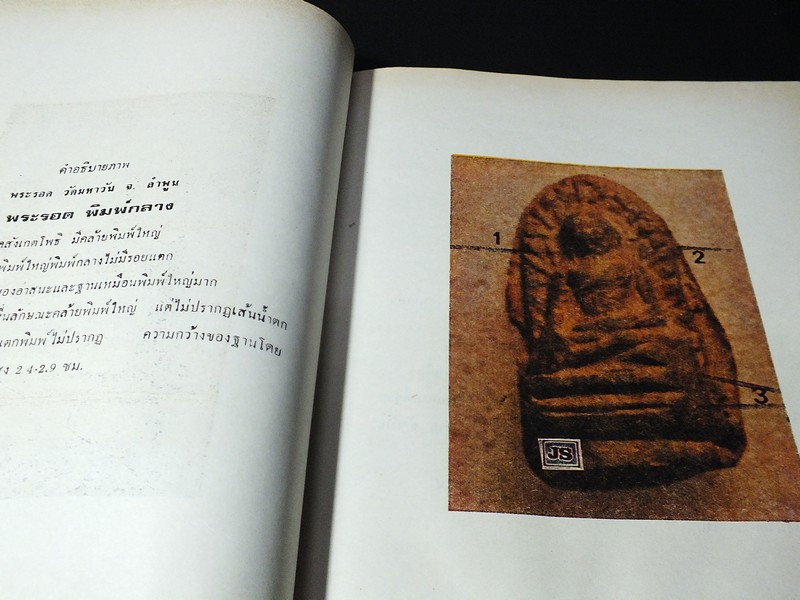 คำอธิบายภาพ
พระรอด วัดมหาวัน จ. ลำพูน
พระรอด พิมพ์กลาง
สังเกตโพธิ มีคล้ายพิมพ์ใหญ่
พิมพ์ใหญ่พิมพ์กลางไม่มีรอยแตก
ของอาสนะและฐานเหมือนพิมพ์ใหญ่มาก
ลักษณะคล้ายพิมพ์ใหญ่ แต่ไม่ปรากฏเส้นน้ำตก
แตกพิมพ์ไม่ปรากฏ ความกว้างของฐานโดย
2.4-2.9 ซม.
1
2
3
JS